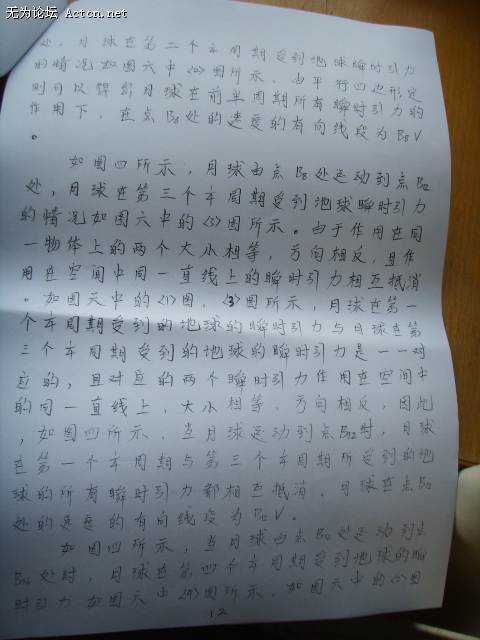 无为论坛 Actcn.net
处，月球在第二个半周期受到地球瞬时引力
的情况如图六中〈2〉图所示，由平行四边形定
则可以得出月球在前半周期所有瞬时引力的
作用下，在点B8处的速度的有向线段为B8V
。
如图四所示，月球由点B8处运动到点B12
处，月球在第三个半周期受到地球瞬时引力
的情况如图六中的〈3〉图所示。由于作用在同
一物体上的两个大小相等，方向相反，且作
用在空间中同一直线上的瞬时引力相互抵消
。如图六中的〈1〉图，〈3〉图所示，月球在第一
个半周期受到的地球的瞬时引力与月球在第
三个半周期受到的地球的瞬时引力是一一对
应的，且对应的两个瞬时引力作用在空间中
的同一直线上，大小相等，方向相反，因此
，如图四所示，当月球运动到点B12时，月球
在第一个半周期与第三个半周期所受到的地
球的所有瞬时引力都相互抵消。月球在点B12
处的速度的有向线段为B12V。
如图四所示，当月球由点B12处运动到点
B16处时，月球在第四个半周期受到地球的瞬
时引力如图六中〈4〉图所示。如图六中的〈2〉图
12